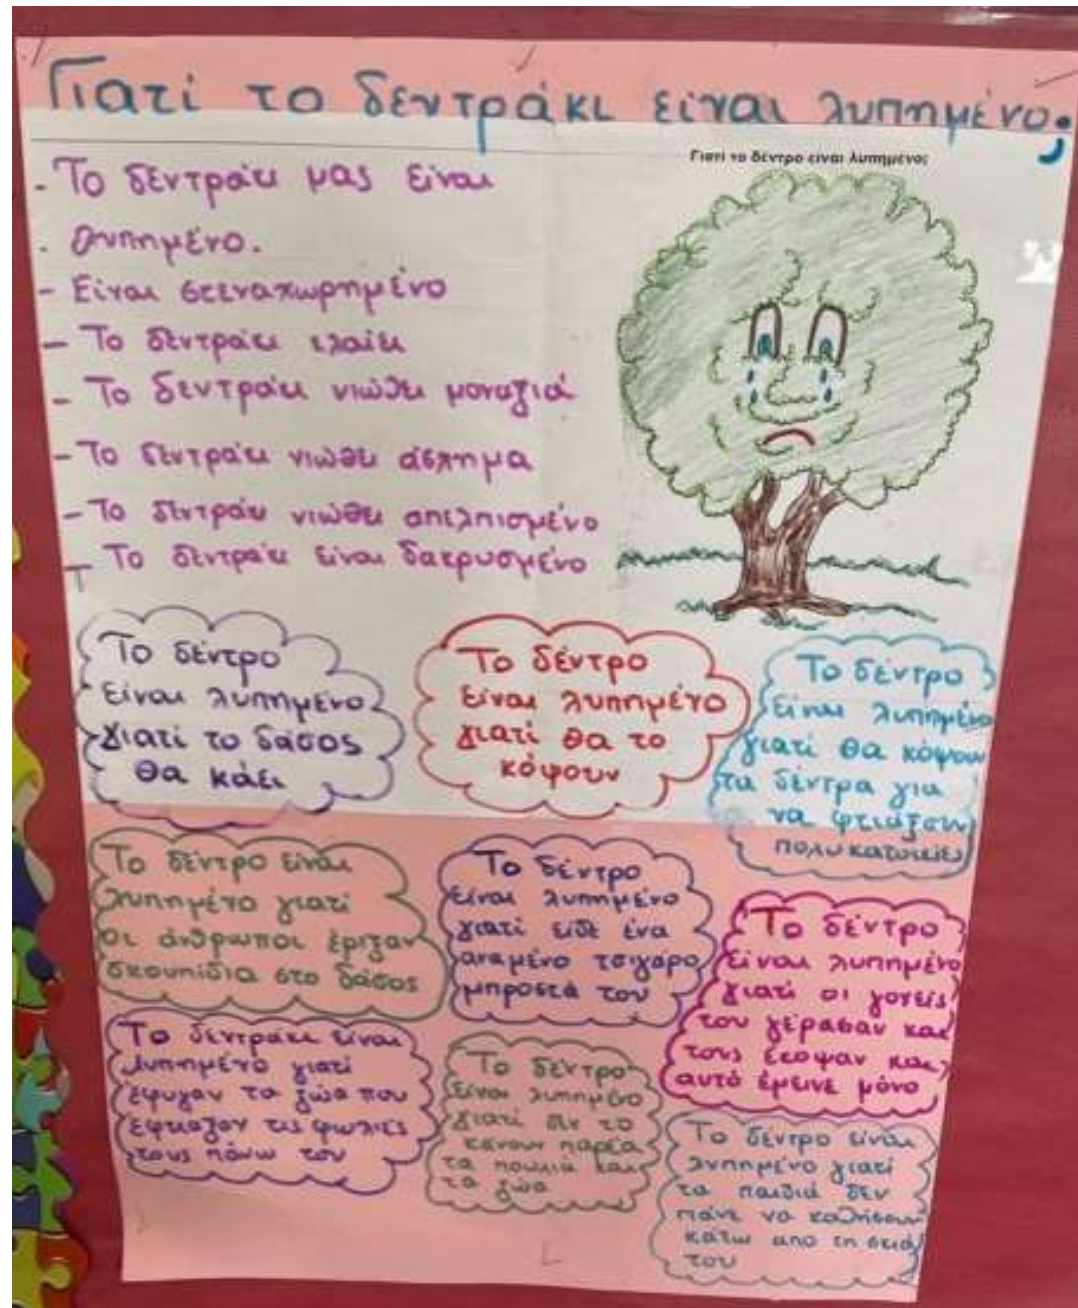 Γιατί το δεντράκι είναι λυπημένο;
Γιατί το δέντρο είναι λυπημένο;
- Το δεντράκι μας είναι
. λυπημένο.
- Είναι στεναχωρημένο
- Το δεντράκι κλαίει
- Το δεντράκι νιώθει μοναξιά
- Το δεντράκι νιώθει άσχημα
- Το δεντράκι νιώθει απελπισμένο
- Το δεντράκι είναι δακρυσμένο
Το δέντρο
είναι λυπημένο
γιατί το δάσος
θα κάει
Το δέντρο
είναι λυπημένο
γιατί θα το
κόψουν
Το δέντρο
είναι λυπημένο
γιατί θα κόψουν
τα δέντρα για
να φτιάξουν
πολυκατοικίες
Το δέντρο είναι
λυπημένο γιατί
οι άνθρωποι έριξαν
σκουπίδια στο δάσος
Το δέντρο
είναι λυπημένο
γιατί είδε ένα
αναμένο τσιγάρο
μπροστά του
Το δέντρο
είναι λυπημένο
γιατί οι γονείς
του γέρασαν και
τους έκοψαν και
αυτό έμεινε μόνο
Το δεντράκι είναι
λυπημένο γιατί
έφυγαν τα ζώα που
έφτιαχναν τις φωλιές
τους πάνω του
Το δέντρο
είναι λυπημένο
γιατί δεν το
κάνουν παρέα
τα πουλιά και
τα ζώα
Το δέντρο είναι
λυπημένο γιατί
τα παιδιά δεν
πάνε να καθήσουν
κάτω από τη σκιά
του